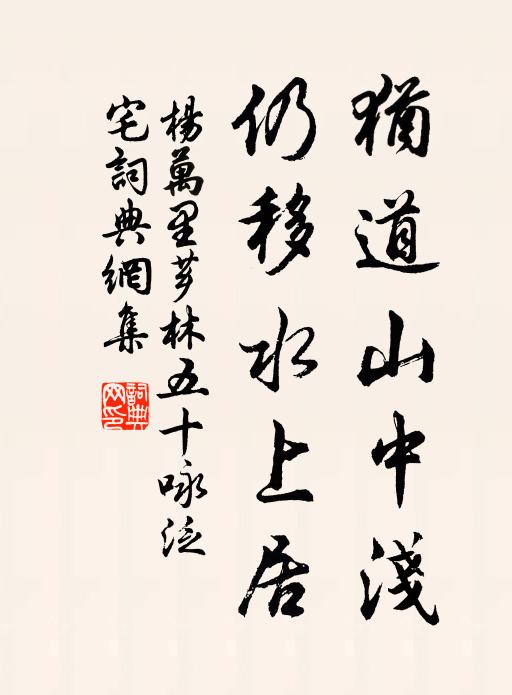 猶道山中淺
仍移水上居
楊萬里芗林五十咏泛
宅詞典網集
詞典网印